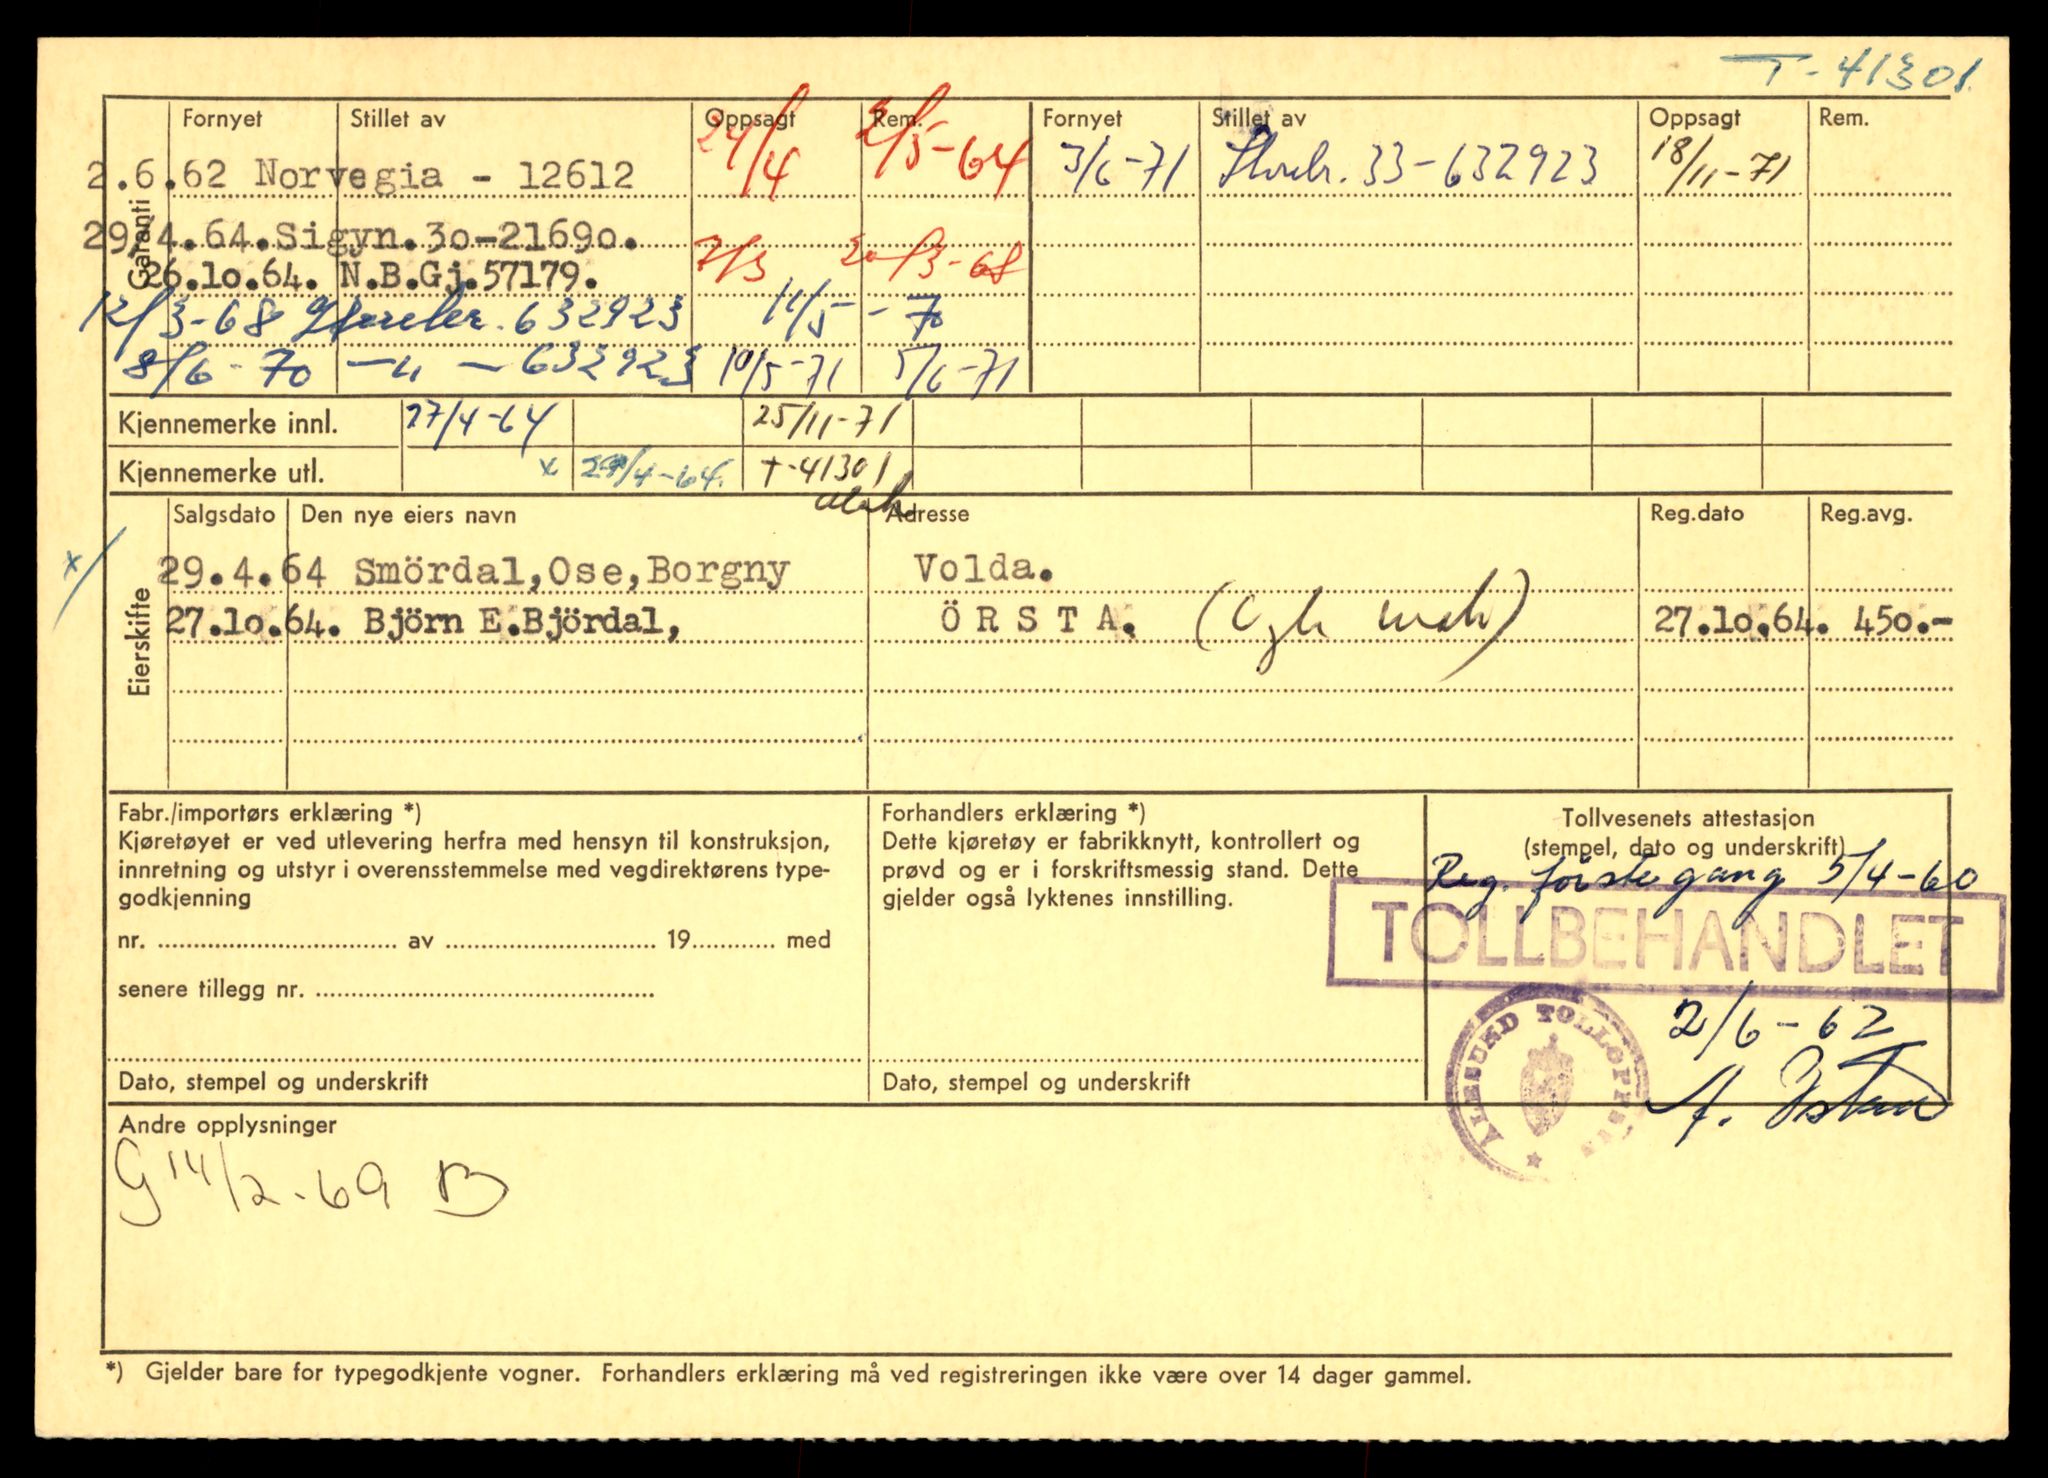 T-41301.
Garanti
Fornyet Stillet av Oppsagt Rem. Fornyet Stillet av Oppsagt Rem.
2.6.62 Norvegia - 12612 24/4 2/5-64 3/6-71 33-632923 18/11-71
29.4.64. Sigyn. 3o-2169o. 7/3 /3-68
26.1o.64. N.B.Gj.57179.
12/3-68 632923 11/5 - 70
8/6-70 —"— 632923 10/5-71 5/6-71
Kjennemerke innl. 27/4-64 25/11-71
Kjennemerke utl. x 29/4-64. T-41301
Eierskifte
Salgsdato Den nye eiers navn Adresse Reg.dato Reg.avg.
x/ 29.4.64 Smördal,Ose,Borgny Volda.
27.1o.64. Björn E.Björdal, ÖRSTA. 27.1o.64. 45o.-
Fabr./importørs erklæring *)
Kjøretøyet er ved utlevering herfra med hensyn til konstruksjon,
innretning og utstyr i overensstemmelse med vegdirektørens type-
godkjenning
nr. .......... av .......... 19.......... med
senere tillegg nr. ..........
Dato, stempel og underskrift
Forhandlers erklæring *)
Dette kjøretøy er fabrikknytt, kontrollert og
prøvd og er i forskriftsmessig stand. Dette
gjelder også lyktenes innstilling.
Dato, stempel og underskrift
Tollvesenets attestasjon
(stempel, dato og underskrift)
Reg. første gang 5/4-60
TOLLBEHANDLET
2/6-62
ÅLESUND TOLLOPPSYN
Andre opplysninger
G 14/2-69 B
*) Gjelder bare for typegodkjente vogner. Forhandlers erklæring må ved registreringen ikke være over 14 dager gammel.